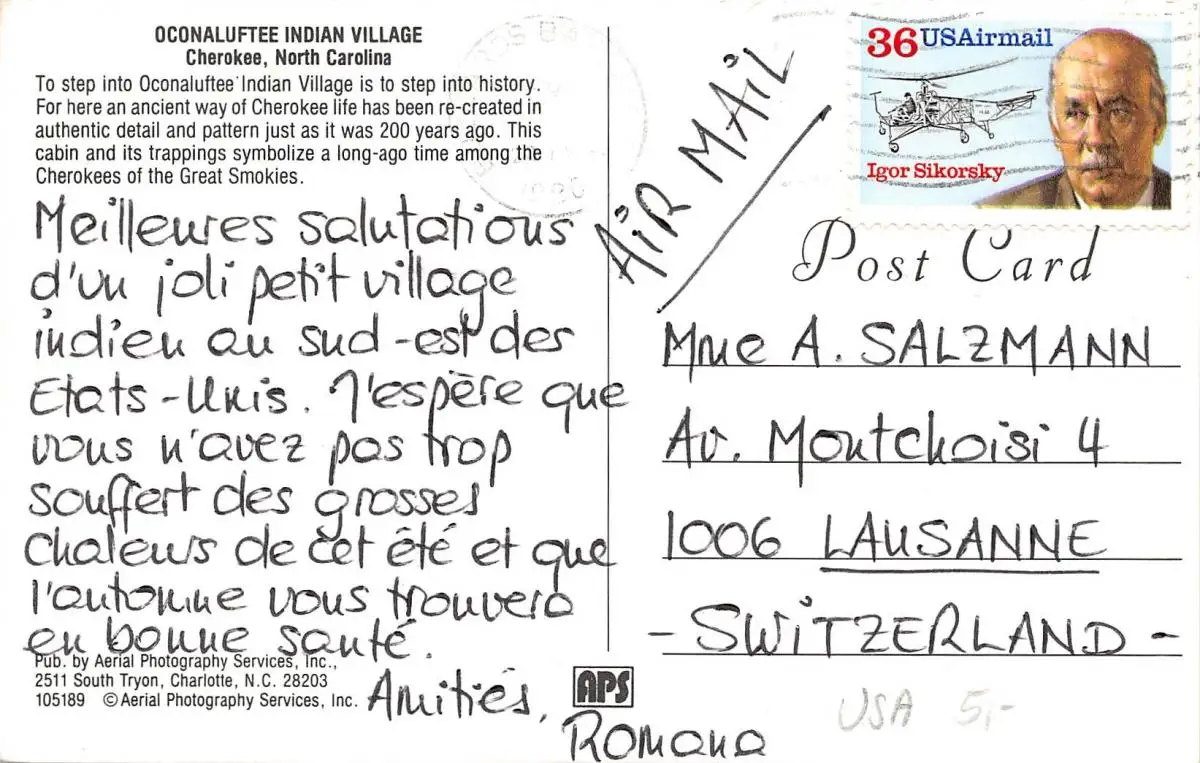 OCONALUFTEE INDIAN VILLAGE
Cherokee, North Carolina
To step into Oconaluftee Indian Village is to step into history.
For here an ancient way of Cherokee life has been re-created in
authentic detail and pattern just as it was 200 years ago. This
cabin and its trappings symbolize a long-ago time among the
Cherokees of the Great Smokies.
Meilleures salutations
d'un joli petit village
indien au sud-est des
Etats-Unis. J'espère que
vous n'avez pas trop
souffert des grosses
chaleurs de cet été et que
l'automne vous trouvera
en bonne santé.
Amitiés,
Romana
Pub. by Aerial Photography Services, Inc.,
2511 South Tryon, Charlotte, N.C. 28203
105189 © Aerial Photography Services, Inc.
APS
AIR MAIL
36 USAirmail
Igor Sikorsky
Post Card
Mme A. SALZMANN
Av. Montchoisi 4
1006 LAUSANNE
- SWITZERLAND -
USA 5,-